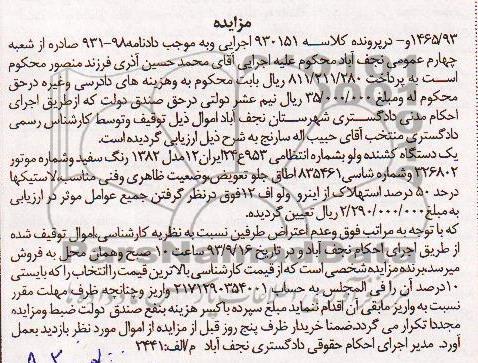 مزایده
۱۴۶۵/۹۳و- درپرونده کلاسه ۹۳۰۱۵۱ اجرایی وبه موجب دادنامه۹۸-۹۳۱ صادره از شعبه
چهارم عمومی نجف آباد محکوم علیه اجرایی آقای محمد حسین آذری فرزند منصور محکوم
است به پرداخت ۸۱۱/۲۱۱/۲۸۰ ریال بابت محکوم به وهزینه های دادرسی وغیره درحق
محکوم له ومبلغ ۳۵/۰۰۰/۰۰۰ ریال نیم عشر دولتی درحق صندق دولت که ازطریق اجرای
احکام مدنی دادگستری شهرستان نجف آباد اموال ذیل توقیف وتوسط کارشناس رسمی
دادگستری منتخب آقای حبیب اله سارنج به شرح ذیل ارزیابی گردیده است.
یک دستگاه کشنده ولو بشماره انتظامی ۹۵۳ع۲۴ایران۱۲مدل ۱۳۸۲ رنگ سفید وشماره موتور
۳۲۶۸۰۲ وشماره شاسی۸۳۵۴۶۱ اطاق جلو تعویض،وضعیت ظاهری وفنی مناسب،لاستیکها
درحد ۵۰ درصد استهلاک از اینرو ولو اف۱۲فوق درنظر گرفتن جمیع عوامل موثر در ارزیابی
به مبلغ۲/۲۹۰/۰۰۰/۰۰۰ ریال تعیین گردیده.
که با توجه به مراتب فوق وعدم اعتراض طرفین نسبت به نظریه کارشناسی،اموال توقیف شده
از طریق اجرای احکام نجف آبادو در تاریخ ۹۳/۹/۱۶ ساعت ۱۰ صبح وهمان محل به فروش
میرسد.برنده مزایده شخصی است که از قیمت کارشناسی بالاترین قیمت راانتخاب را که بایستی
۱۰درصد آن را فی المجلس به حساب ۲۱۷۱۲۹۰۳۵۴۰۰۱ واریز وچنانچه ظرف مهلت مقرر
نسبت به واریز مابقی آن اقدام ننماید مبلغ سپرده باکسر هزینه بنفع صندق دولت ضبط ومزایده
مجددا تکرار می گردد.ضمنا خریدار ظرف پنج روز قبل از مزایده از اموال مورد نظر بازدید بعمل
آورد. مدیر اجرای احکام حقوقی دادگستری نجف آباد م/الف:۲۴۴۱